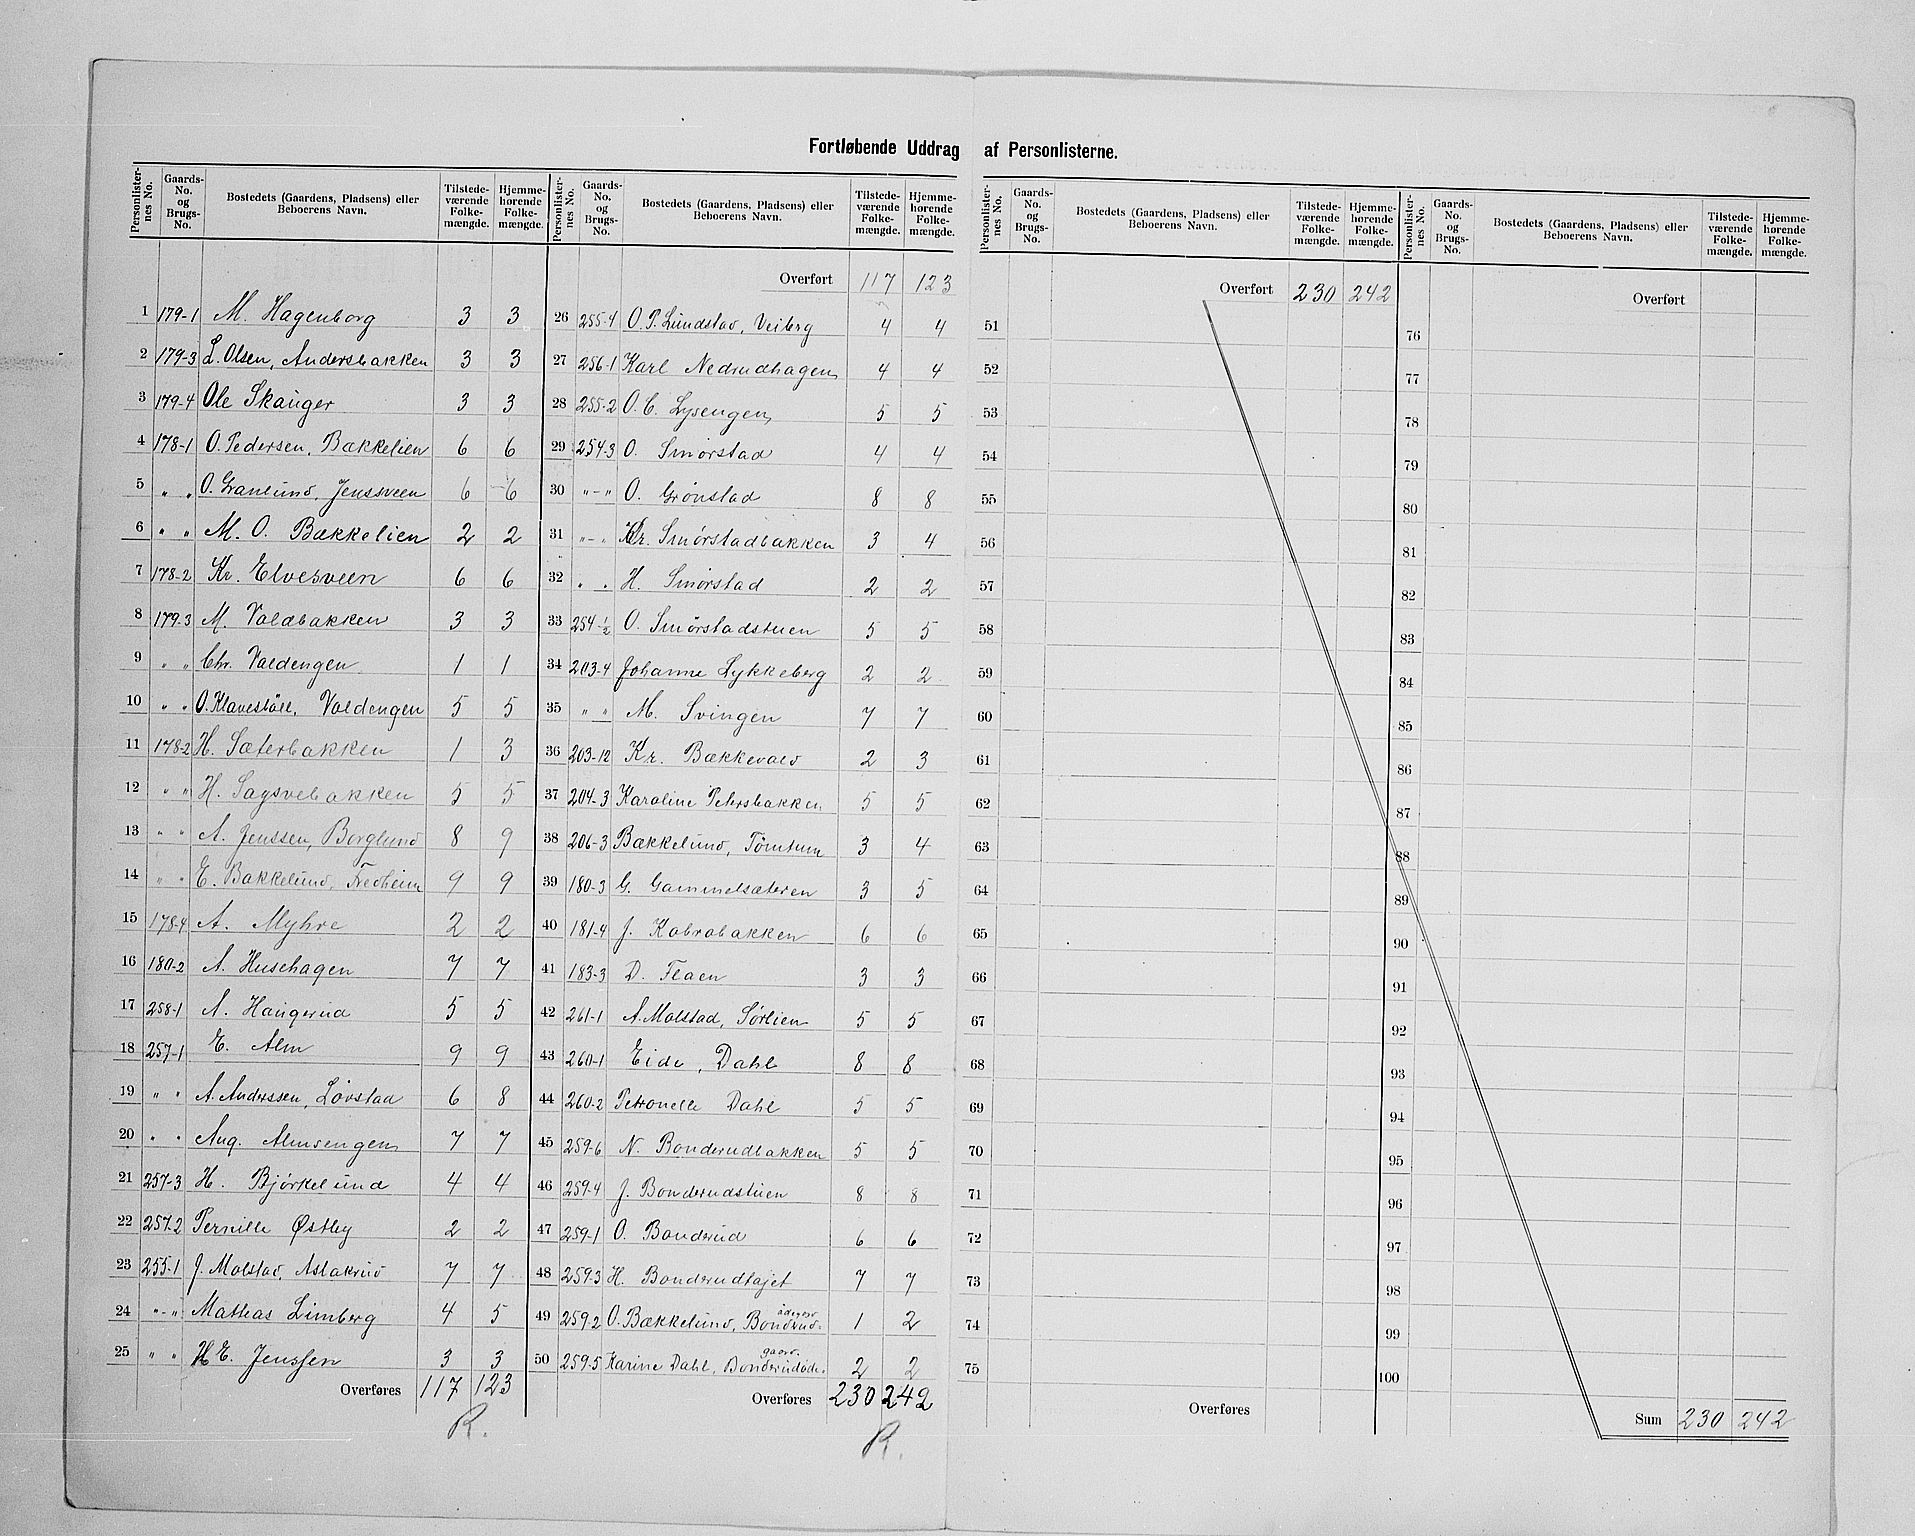 Fortløbende Uddrag af Personlisterne.
Personlister-nes No. Gaards-No. og Brugs-No. Bostedets (Gaardens, Pladsens) eller Beboerens Navn. Tilstede-værende Folke-mængde. Hjemme-hørende Folke-mængde.
1 179-1 M. Hagenborg 3 3
2 179-3 L. Olsen, Andersbakken 3 3
3 179-4 Ole Skauger 3 3
4 178-1 O. Pedersen, Bækkelien 6 6
5 " " O. Granlund, Jenssveen 6 6
6 " " M. O. Bækkelien 2 2
7 178-2 Kr. Elvesveen 6 6
8 179-3 M. Valdbakken 3 3
9 " " Chr. Valdengen 1 1
10 " " O. Klavestöll, Valdengen 5 5
11 178-2 H. Sæterbakken 1 3
12 " " H. Sagsvebakken 5 5
13 " " A. Jenssen, Borglund 8 9
14 " " E. Bakkelund, Fredheim 9 9
15 178-4 A. Myhre 2 2
16 180-2 A. Husehagen 7 7
17 258-1 A. Haugerud 5 5
18 257-1 E. Alm 9 9
19 " " A. Anderssen, Løvstad 6 8
20 " " Aug. Almsengen 7 7
21 257-3 H. Bjørkelund 4 4
22 257-2 Pernille Østby 2 2
23 255-1 J. Molstad, Aslakrud 7 7
24 "-" Mathias Limberg 4 5
25 " " H E. Jenssen 3 3
Overføres 117 123
R.
Personlister-nes No. Gaards-No. og Brugs-No. Bostedets (Gaardens, Pladsens) eller Beboerens Navn. Tilstede-værende Folke-mængde. Hjemme-hørende Folke-mængde.
Overført 117 123
26 255-4 O. P. Lundstad, Veiberg 4 4
27 256-1 Karl Nedrudhagen 4 4
28 255-2 O. C. Lysengen 5 5
29 254-3 O. Smørstad 4 4
30 "-" O. Grønstad 8 8
31 "-" Kr. Smørstadbakken 3 4
32 " " H. Smørstad 2 2
33 254-1/2 O. Smørstadstuen 5 5
34 203-4 Johanne Lykkeberg 2 2
35 " " M. Svingen 7 7
36 203-12 Kr. Bækkevold 2 3
37 204-3 Karoline Petersbakken 5 5
38 206-3 Bækkelund, Tømtum 3 4
39 180-3 G. Gammelsæteren 3 5
40 181-4 J. Kabrabakken 6 6
41 183-3 D. Flaen 3 3
42 261-1 A. Molstad, Sørlien 5 5
43 260-1 Eide, Dahl 8 8
44 260-2 Petronelle Dahl 5 5
45 259-6 N. Bonderudbakken 5 5
46 259-4 J. Bonderudstuen 8 8
47 259-1 O. Bonderud 6 6
48 259-3 H. Bonderudhajet 7 7
49 259-2 O. Bækkelund, Bondrud- ødegård 1 2
50 259-5 Karine Dahl, Bonderudøde- gaard. 2 2
Overføres 230 242
R.
Personlister-nes No. Gaards-No. og Brugs-No. Bostedets (Gaardens, Pladsens) eller Beboerens Navn. Tilstede-værende Folke-mængde. Hjemme-hørende Folke-mængde.
Overført 230 242
51
52
53
54
55
56
57
58
59
60
61
62
63
64
65
66
67
68
69
70
71
72
73
74
75
Overføres
Personlister-nes No. Gaards-No. og Brugs-No. Bostedets (Gaardens, Pladsens) eller Beboerens Navn. Tilstede-værende Folke-mængde. Hjemme-hørende Folke-mængde.
Overført
76
77
78
79
80
81
82
83
84
85
86
87
88
89
90
91
92
93
94
95
96
97
98
99
100
Sum 230 242